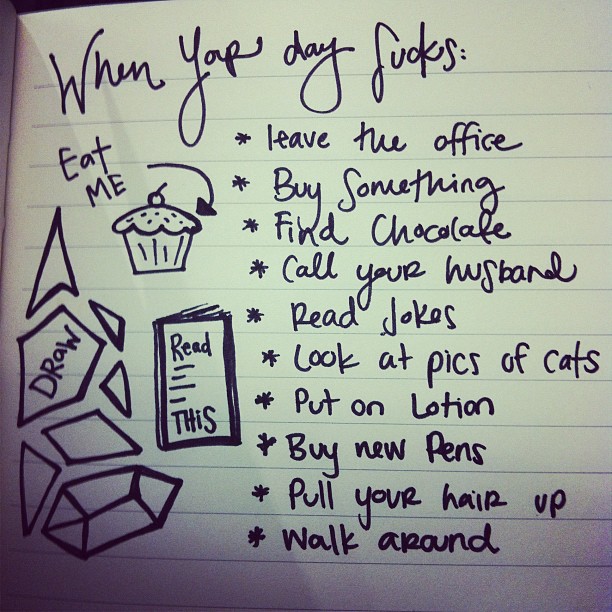 When Your day Sucks:
* leave the office
* Buy Something
* Find Chocolate
* Call your husband
* Read Jokes
* Look at pics of cats
* Put on Lotion
* Buy new Pens
* Pull your hair up
* Walk around
Eat
ME
DRAW
Read
THIS